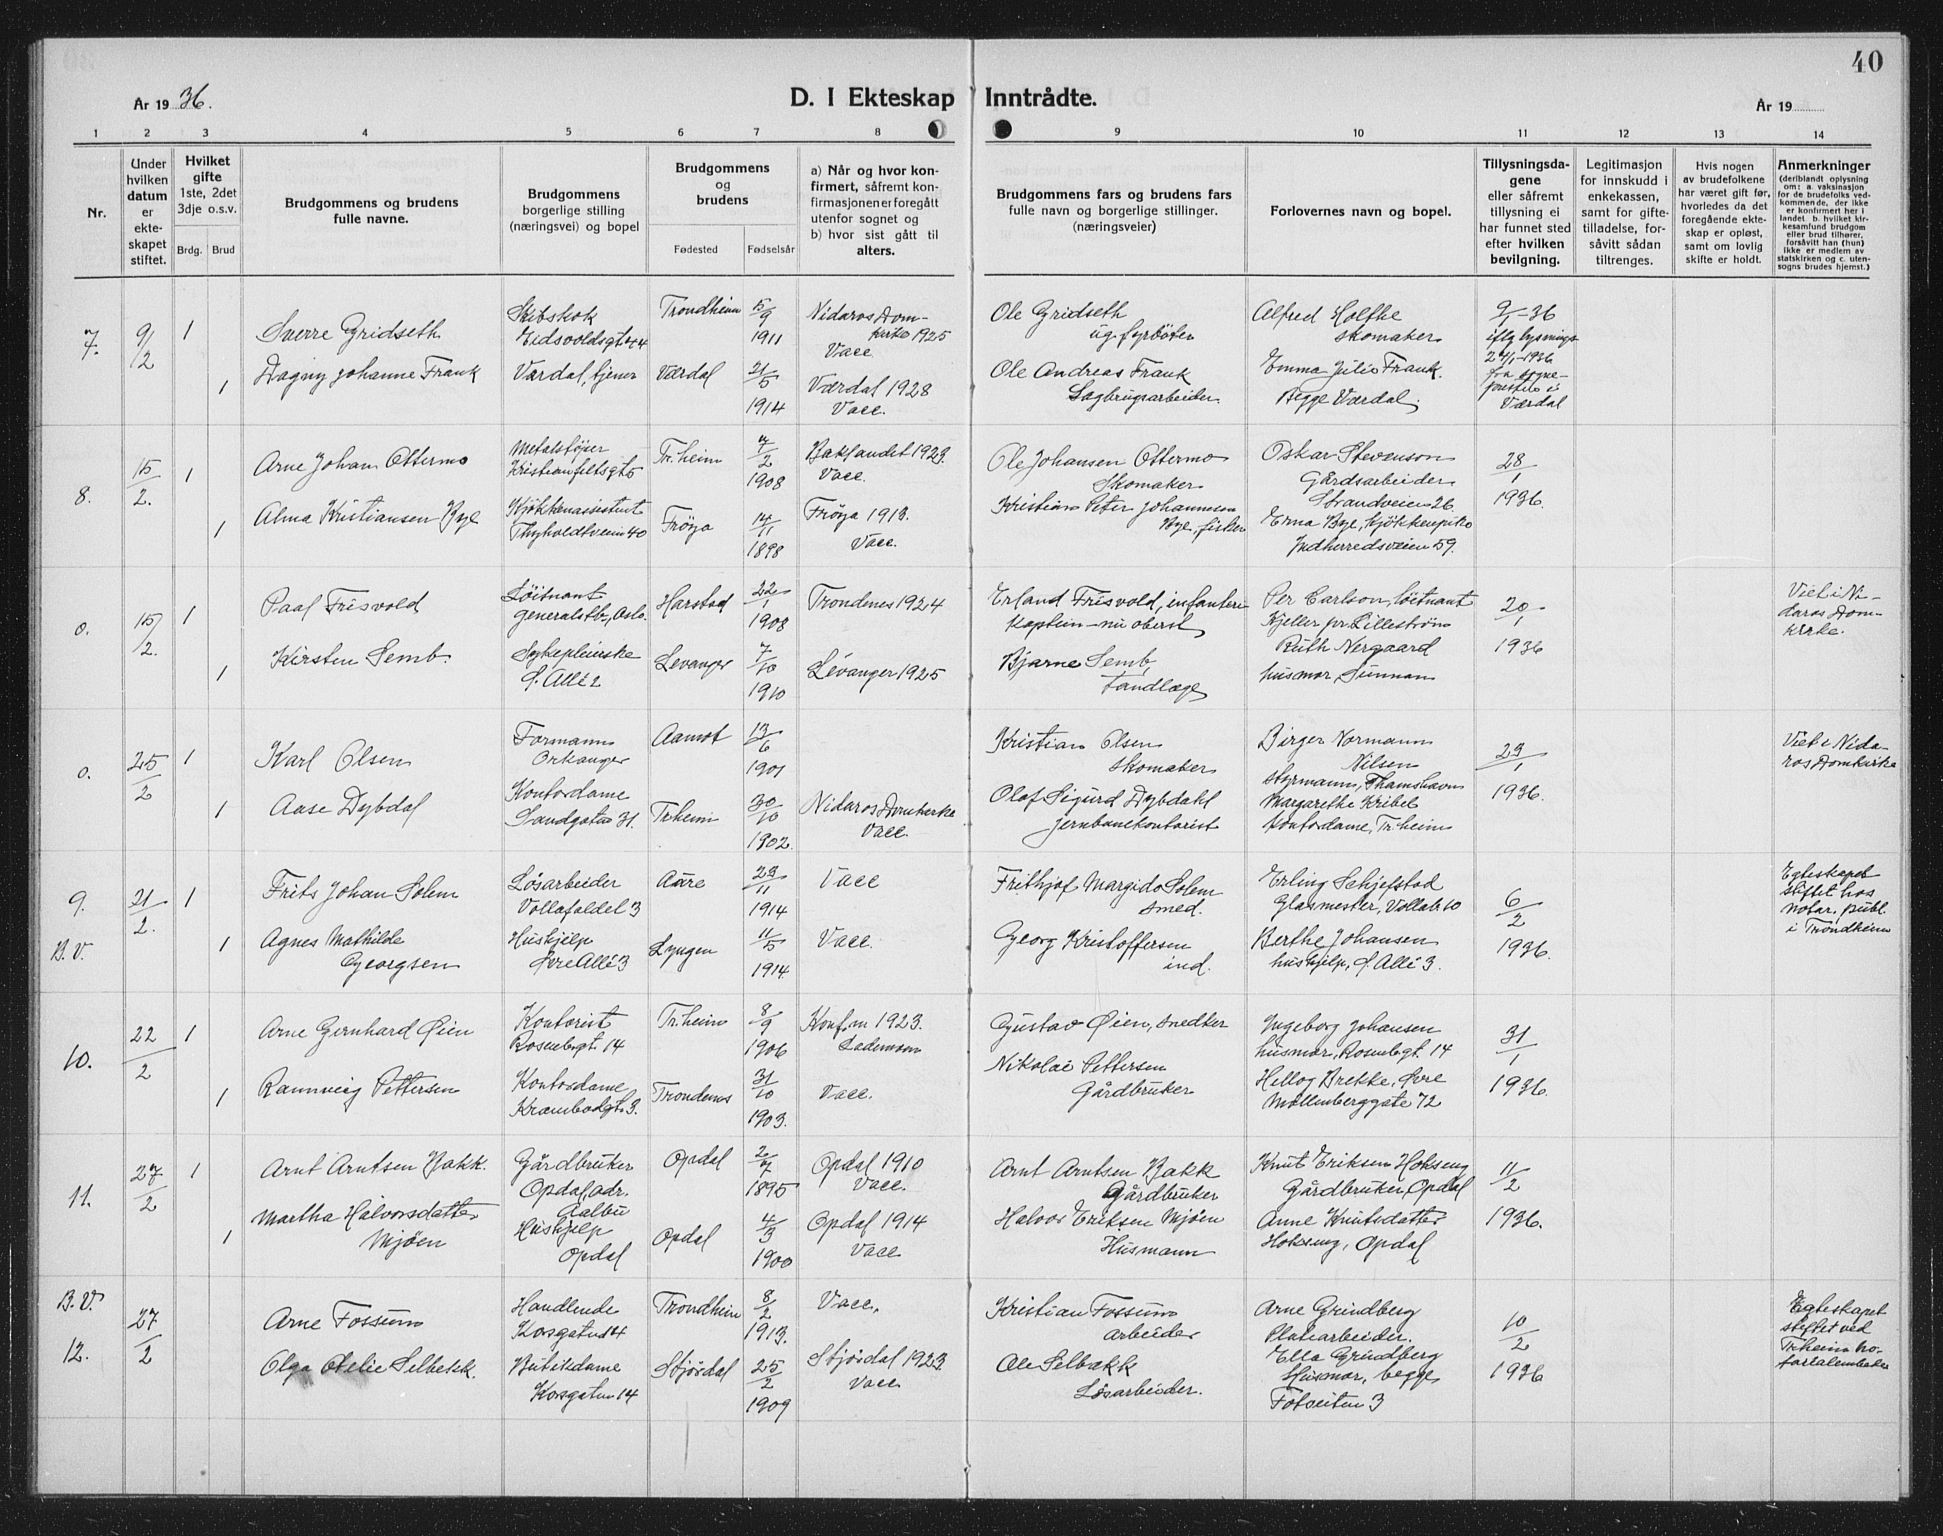 40
År 1936.
D. I Ekteskap Inntrådte.
År 19
1 2 3 4 5 6 7 8 9 10 11 12 13 14
Nr.
Under
hvilken
datum
er
ekte-
skapet
stiftet.
Hvilket
gifte
1ste, 2det
3dje o.s.v.
Brdg. Brud
Brudgommens og brudens
fulle navne.
Brudgommens
borgerlige stilling
(næringsvei) og bopel
Brudgommens
og
brudens
Fødested Fødselsår
a) Når og hvor kon-
firmert, såfremt kon-
firmasjonen er foregått
utenfor sognet og
b) hvor sist gått til
alters.
Brudgommens fars og brudens fars
fulle navn og borgerlige stillinger.
(næringsveier)
Forlovernes navn og bopel.
Tillysningsda-
gene
eller såfremt
tillysning ei
har funnet sted
efter hvilken
bevilgning.
Legitimasjon
for innskudd i
enkekassen,
samt for gifte-
tilladelse, for-
såvitt sådan
tiltrenges.
Hvis nogen
av brudefolkene
har været gift før,
hvorledes da det
foregående ekte-
skap er opløst,
samt om lovlig
skifte er holdt.
Anmerkninger
(deriblandt oplysning
om: a. vaksinasjon
for de brudefolks ved-
kommende, der ikke
er konfirmert her i
landet b. hvilket kir-
kesamfund brudgom
eller brud tilhører,
forsåvitt han (hun)
ikke er medlem av
statskirken og c. uten-
sogns brudes hjemst.)
7. 9/2 1
Sverre Gridseth
Skibskok
Eidsvoldsgt 44
Trondheim 15/9 1911
Nidaros Dom-
kirke 1925
Vacc.
Ole Gridseth
ug. fyrbøter
Alfred Holthe
skomaker
9/1-36
iflg lysnings
24/1-1936
fra sogne-
presten i
Værdal
1
Dagny Johanne Frank
Værdal, tjener
Værdal 21/5 1914
Værdal 1928
Vacc.
Ole Andreas Frank
Sagbrugsarbeider
Emma Julie Frank.
Begge Værdal.
8. 15/2. 1
Arne Johan Ottermo
Metalstøper
Kristianfeltsgt 5
Tr.heim 7/2 1908
Baklandet 1923.
Vacc.
Ole Johansen Ottermo
Skomaker
Oskar Stevenson
Gårdsarbeider
Strandveien 26.
28/1 1936.
1
Alma Kristiansen Bye
Kjøkkenassistent
Thyholdtveien 40
Frøya 14/11 1898
Frøya 1913.
Vacc.
Kristian Peter Johannesen
Bye, fisker
Erna Bye, kjøkkenpike
Indherredsveien 59.
0. 15/2. 1
Paal Frisvold
Løitnant
generalstb, Oslo.
Harstad 22/1 1908
Trondenes 1924
Erland Frisvold, infanteri
kaptein – nu oberst
Per Carlson, løitnant
Kjeller pr. Lillestrøm
20/1 1936
Viet i Ni-
daros Dom-
kirke.
1
Kirsten Semb.
Sykepleierske
Ø. Allé 2
Levanger 7/10 1910
Levanger 1925
Bjarne Semb,
tandlæge
Ruth Nergaard
husmor Sunnan
0. 25/2 1
Karl Olsen
Formann
Orkanger
Aamot 13/6 1901
Kristian Olsen
skomaker
Birger Normann
Nilsen
styrmann, Thamshavn
23/1 1936.
Viet i Nida-
ros Domkirke
1
Aase Dybdal
Kontordame
Sandgaten 31.
Tr.heim 30/10 1902.
Nidaros Domkirke
Vacc.
Olaf Sigurd Dybdahl
jernbanekontorist
Margarethe Kribel
kontordame, Tr.heim
9. 21/2. 1
B.V.
Frits Johan Solem
Løsarbeider
Vollafaldet 3
Aure 23/11 1914
Vacc
Frithjof Margido Solem
smed.
Erling Schjefstad
Glasmester, Vollab 10
6/2 1936.
Egteskapet
stiftet hos
notar. publ.
i Trondheim
1
Agnes Mathilde
Georgsen
Huskjelp
Øvre Allé 3
Lyngen 11/5 1914
Vacc.
Georg Kristoffersen
ind.
Berthe Johansen
huskjelp, Ø. Allé 3.
10. 22/2 1
Arne Gernhard Øien
Kontorist
Rosenbgt. 14
Tr.heim 8/9 1906
Konf. in 1923.
Lademoen
Gustav Øien, snedker
Ingeborg Johansen
husmor, Rosenbgt. 14
31/1 1936.
1
Rannveig Pettersen
Kontordame
Krambodgt 3.
Trondenes 31/10 1903.
Vacc.
Nikolai Pettersen
Gårdbruker
Hellog Brekke, Øvre
Møllenberggate 72
11. 27/2 1
Arnt Arntsen Bakk.
Gårdbruker
Opdal, adr.
Aalbu
Opdal 2/7 1895
Opdal 1910
Vacc.
Arnt Arntsen Bakk
Gårdbruker
Knut Eriksen Hokseng
Gårdbruker, Opdal
11/2 1936.
1
Martha Halvorsdatter
Mjøen
Huskjelp
Opdal
Opdal 4/3 1900
Opdal 1914
Vacc
Halvor Eriksen Mjøen
Husmann
Anne Knutsdatter
Hokseng, Opdal
B.V.
12. 27/2
Arne Fossum
Handlende
Korsgaten 14
Trondheim 8/2 1913.
Vacc.
Kristian Fossum
arbeider
Arne Grindberg
Platearbeider.
10/2 1936
Egteskapet
stiftet ved
Tr.heim no-
tarialembede
Olga Otelie Selbekk.
Butikdame
Korsgaten 14
Stjørdal 25/2 1909
Stjørdal 1923
Vacc
Ole Selbækk
Løsarbeider.
Ella Grindberg
Husmor, begge
Fotveiten 3